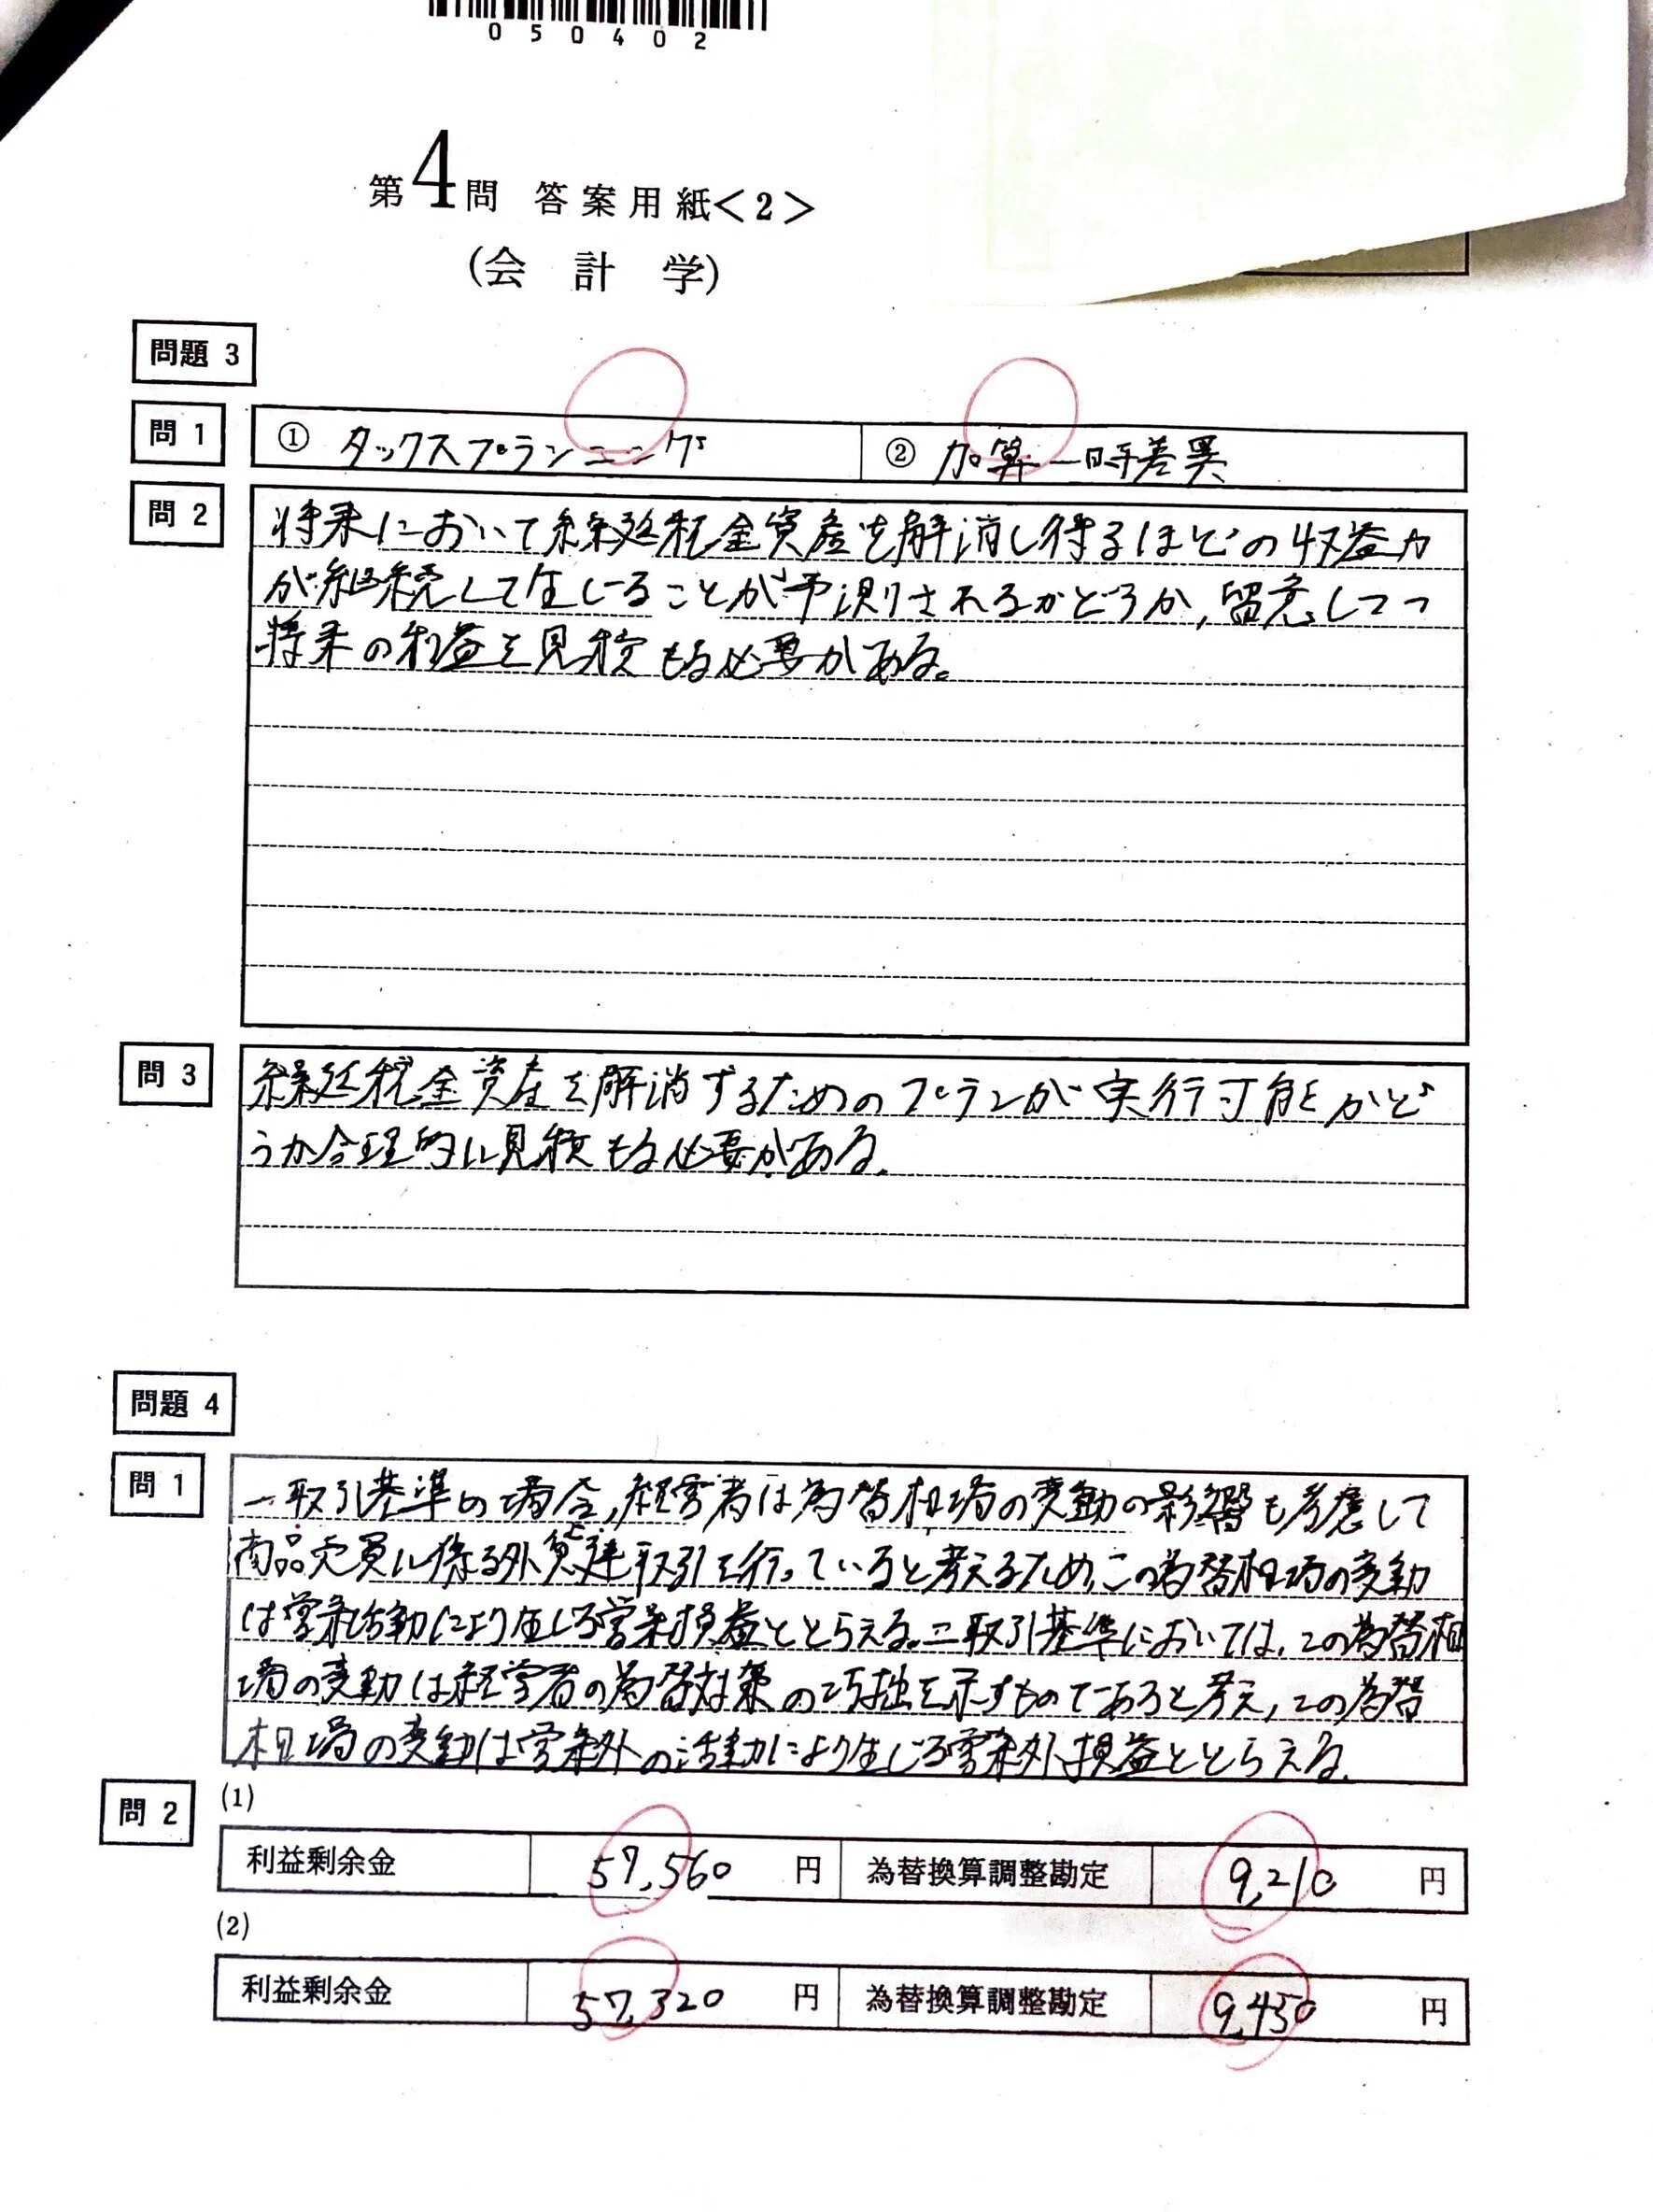 050402
第4問 答案用紙<2>
(会計学)
問題 3
問 1
① タックスプランニング
② 加算一時差異
問 2
将来において繰延税金資産を解消し得るほどの収益力
が継続して生じることが予測されるかどうか,留意しつつ
将来の利益を見積もる必要がある。
問 3
繰延税金資産を解消するためのプランが実行可能かど
うか合理的に見積もる必要がある。
問題 4
問 1
一取引基準の場合,経営者は為替相場の変動の影響も考慮して
商品売買に係る外貨建取引を行っていると考えるため,この為替相場の変動
は営業活動により生じる営業損益ととらえる。二取引基準においては,この為替相
場の変動は経営者の為替対策の巧拙を示すものであると考え,この為替
相場の変動は営業外の活動により生じる営業外損益ととらえる。
問 2
(1)
利益剰余金 57,560 円 為替換算調整勘定 9,210 円
(2)
利益剰余金 57,320 円 為替換算調整勘定 9,450 円